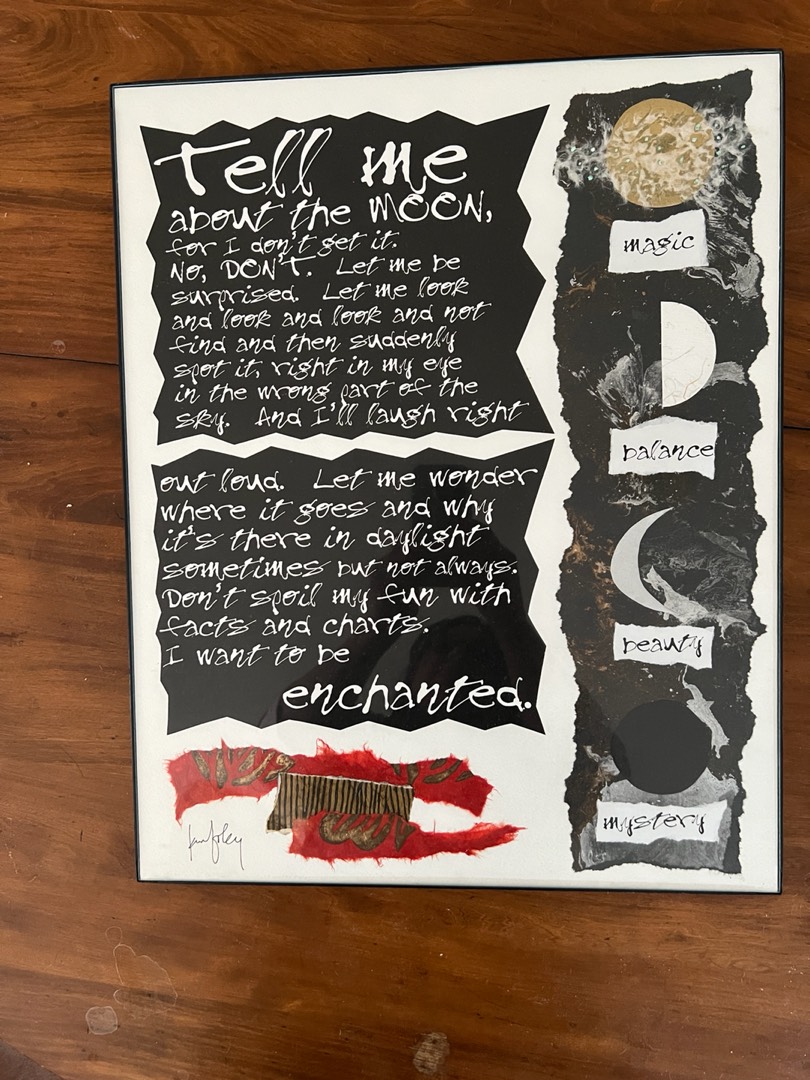 Tell me
about the MOON,
for I don't get it.
No, DON'T. Let me be
surprised. Let me look
and look and look and not
find and then suddenly
spot it, right in my eye
in the wrong part of the
sky. And I'll laugh right
out loud. Let me wonder
where it goes and why
it's there in daylight
sometimes but not always.
Don't spoil my fun with
facts and charts.
I want to be
enchanted.
magic
balance
beauty
mystery